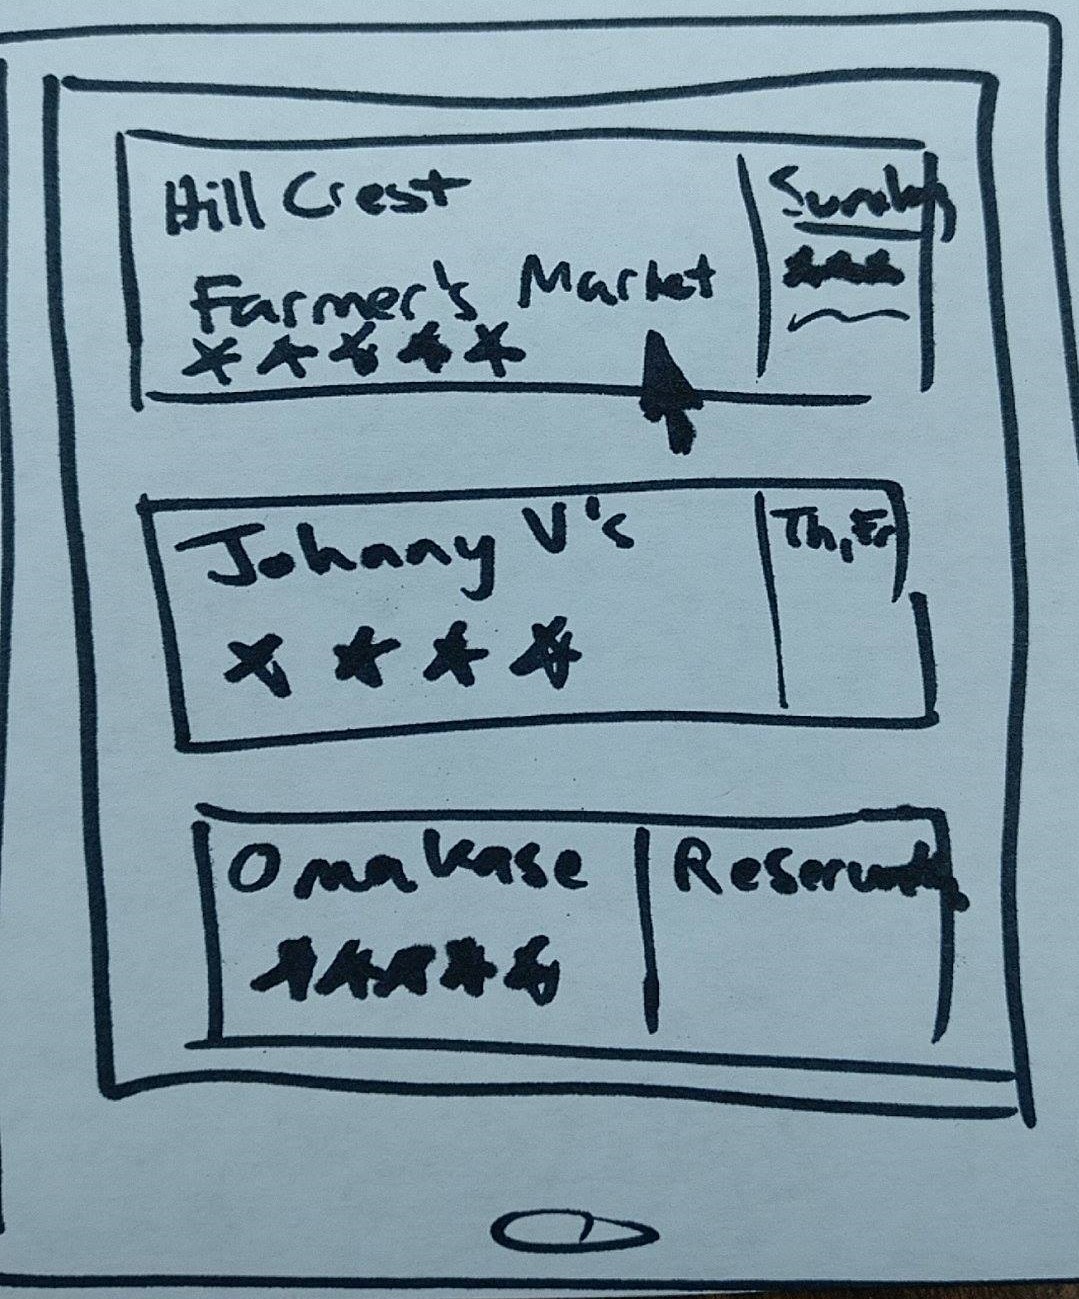 Hill Crest
Farmer's Market
Sunday
Johnny V's
Th, Fr
Omakase